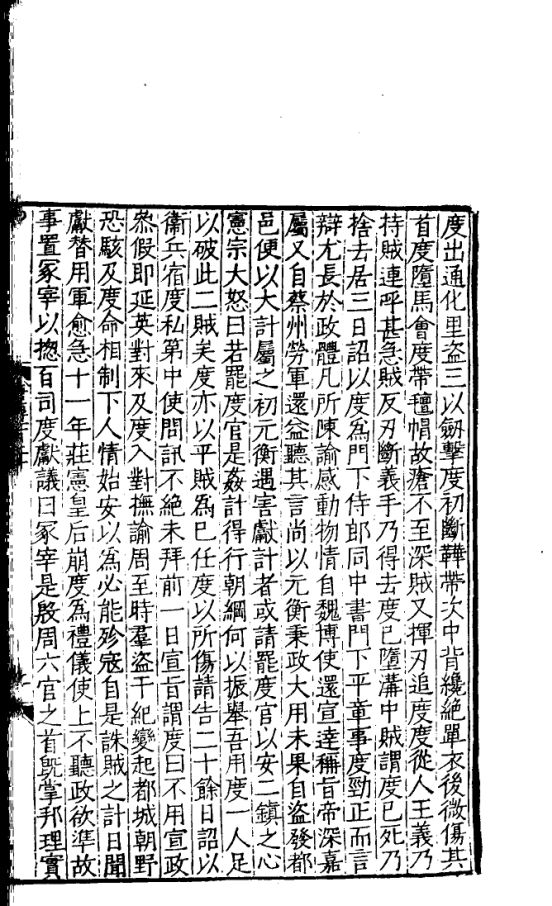 度出通化里盜三以劒擊度初斷鞾帶次中背纔絕單衣後微傷其
首度墮馬會度帶氊帽故瘡不至深賊又揮刃追度度從人王義乃
持賊連呼甚急賊反刃斷義手乃得去度已墮溝中賊謂度已死乃
捨去居三日詔以度爲門下侍郎同中書門下平章事度勁正而言
辯尤長於政體凡所陳諭感動物情自魏博使還宣達稱旨帝深嘉
屬又自蔡州勞軍還益聽其言尚以元衡秉政大用未果自盜發都
邑便以大計屬之初元衡遇害獻計者或請罷度官以安二鎮之心
憲宗大怒曰若罷度官是姦計得行朝綱何以振舉吾用度一人足
以破此二賊矣度亦以平賊爲已任度以所傷請告二十餘日詔以
衛兵宿度私第中使問訊不絕未拜前一日宣旨謂度曰不用宣政
叅假即延英對來及度入對撫諭周至時羣盜干紀變起都城朝野
恐駭及度命相制下人情始安以爲必能殄寇自是誅賊之計日聞
獻替用軍愈急十一年莊憲皇后崩度爲禮儀使上不聽政欲準故
事置冢宰以揔百司度獻議曰冢宰是殷周六官之首旣掌邦理實